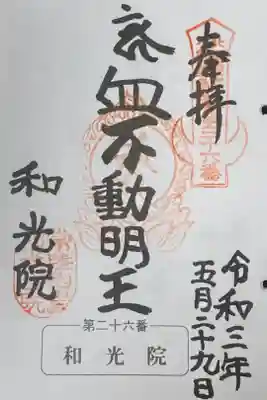 奉拝
令和三年
五月二十九日
血不動明王
和光院
第二十六番
和光院